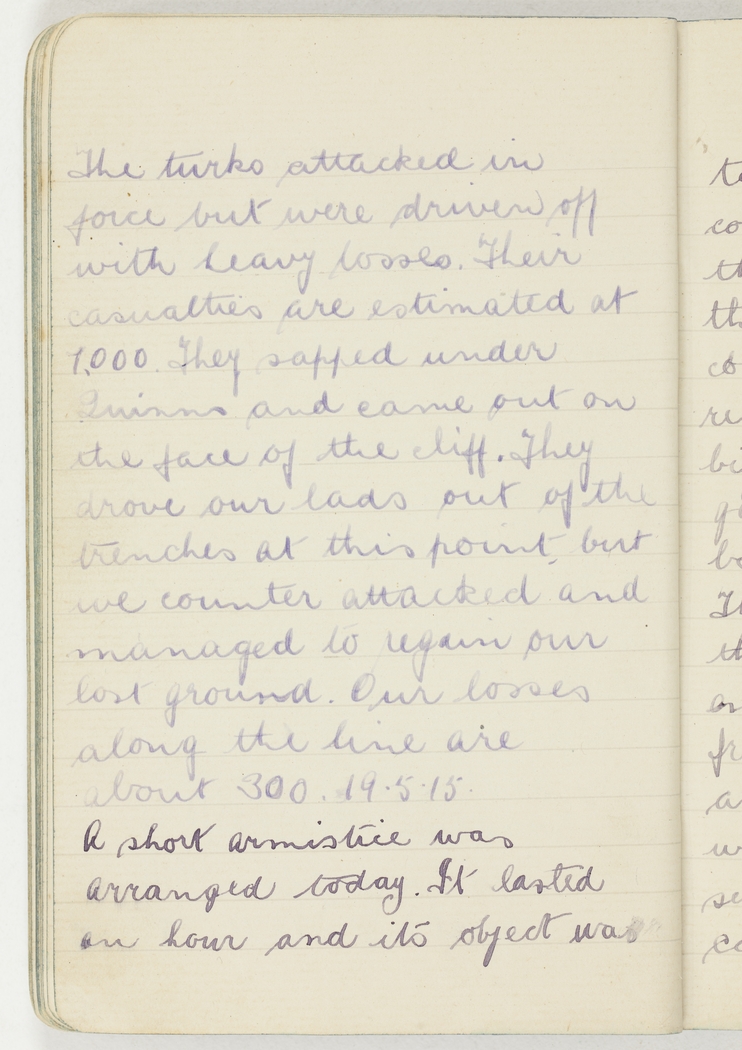 The turks attacked in
force but were driven off
with heavy losses. Their
casualties are estimated at
1,000. They sapped under
Quinns and came out on
the face of the cliff. They
drove our lads out of the
trenches at this point, but
we counter attacked and
managed to regain our
lost ground. Our losses
along the line are
about 300. 19.5.15.
A short armistice was
arranged today. It lasted
an hour and its object was